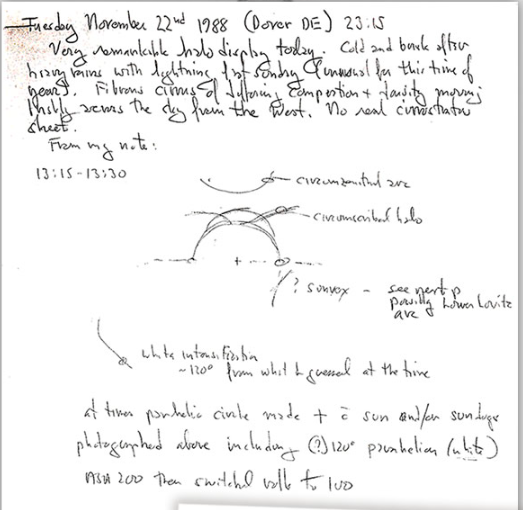 Tuesday November 22nd 1988 (Dover DE) 23:15
Very remarkable halo display today. Cold and after
heavy rains with lightning Sunday (unusual for this time of
year). Fibrous cirrus of differing composition + density moving
across the sky from the West. No real cirrostratus
sheet.
From my notes:
13:15-13:30
circumzenithal arc
circumscribed halo
? sunvex - see next p
possibly Lower Lowitz
arc
white intensification
~120° from what I guessed at the time
at times parhelic circle made + c̄ sun and/or sundogs
photographed above including (?) 120° parhelion (white)
ASA 200 then switched to 100